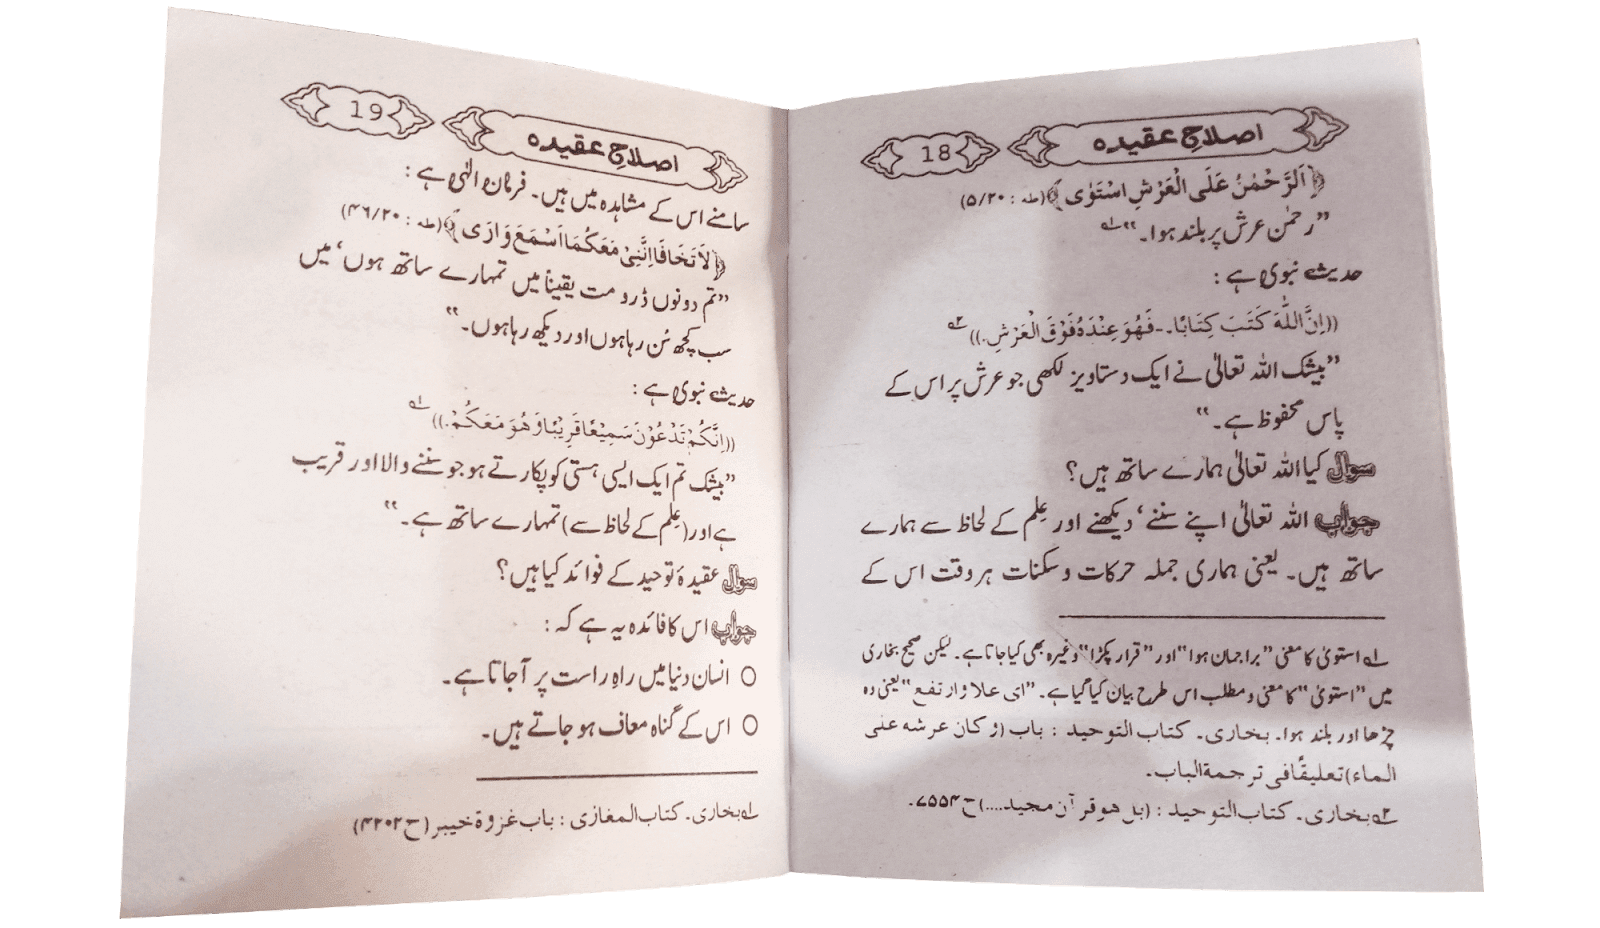 اصلاحِ عقیدہ 18
﴿اَلرَّحْمٰنُ عَلَی الْعَرْشِ اسْتَوٰی﴾(طہ : ۵/۲۰)
”رحمٰن عرش پر بلند ہوا۔“ ۱ے
حدیث نبوی ہے :
((اِنَّ اللّٰهَ كَتَبَ كِتَابًا۔۔فَهُوَ عِنْدَهٗ فَوْقَ الْعَرْشِ.)) ۲ے
”بیشک اللہ تعالیٰ نے ایک دستاویز لکھی جو عرش پر اس کے
پاس محفوظ ہے۔“
سوال کیا اللہ تعالیٰ ہمارے ساتھ ہیں؟
جواب اللہ تعالیٰ اپنے سننے‘ دیکھنے اور عِلم کے لحاظ سے ہمارے
ساتھ ہیں۔ یعنی ہماری جملہ حرکات و سکنات ہر وقت اس کے
۱ے استویٰ کا معنی ”براجمان ہوا“ اور ”قرار پکڑا“ وغیرہ بھی کیا جاتا ہے۔ لیکن صحیح بخاری
میں ”استویٰ“ کا معنی و مطلب اس طرح بیان کیا گیا ہے۔ ”ای علا وارتفع“ یعنی وہ
چڑھا اور بلند ہوا۔ بخاری۔ کتاب التوحید : باب (وکان عرشہ علی
الماء) تعلیقًا فی ترجمۃ الباب۔
۲ے بخاری۔ کتاب التوحید : (بل ھو قرآن مجید....) ح ۷۵۵۴۔
اصلاحِ عقیدہ 19
سامنے اس کے مشاہدہ میں ہیں۔ فرمانِ الٰہی ہے :
﴿لَا تَخَافَا اِنَّنِیْ مَعَكُمَا اَسْمَعُ وَ اَرٰی﴾(طہ : ۴۶/۲۰)
”تم دونوں ڈرو مت یقیناً میں تمہارے ساتھ ہوں‘ میں
سب کچھ سُن رہا ہوں اور دیکھ رہا ہوں۔“
حدیث نبوی ہے :
((اِنَّكُمْ تَدْعُوْنَ سَمِیْعًا قَرِیْبًا وَ هُوَ مَعَكُمْ.)) ۱ے
”بیشک تم ایک ایسی ہستی کو پکارتے ہو جو سننے والا اور قریب
ہے اور (عِلم کے لحاظ سے) تمہارے ساتھ ہے۔“
سوال عقیدۂ توحید کے فوائد کیا ہیں؟
جواب اس کا فائدہ یہ ہے کہ :
○ انسان دنیا میں راہِ راست پر آجاتا ہے۔
○ اس کے گناہ معاف ہو جاتے ہیں۔
۱ے بخاری۔ کتاب المغازی : باب غزوۃ خیبر (ح ۴۲۰۲)